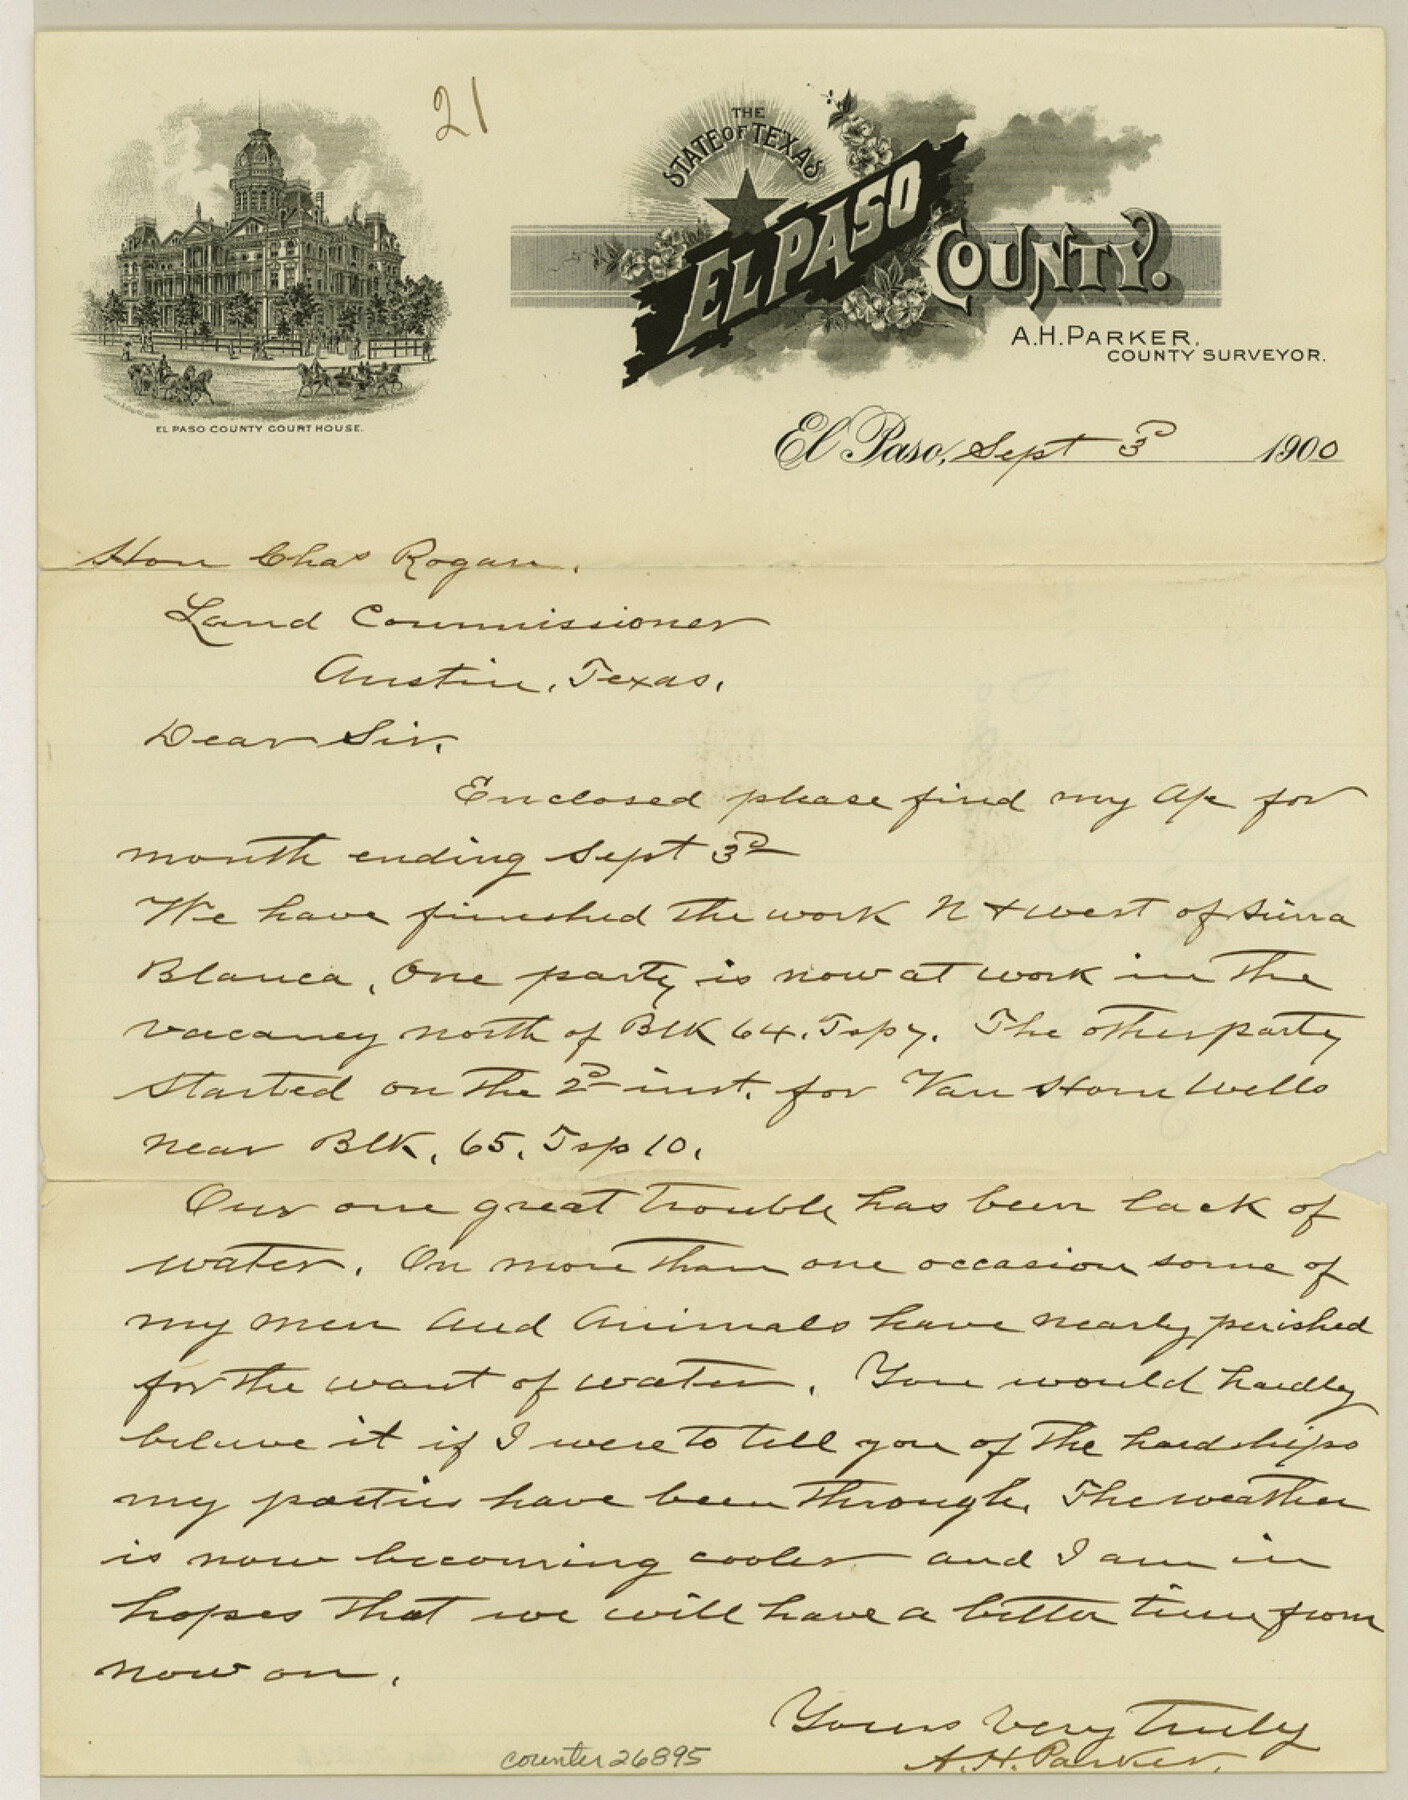 21
THE
STATE OF TEXAS
EL PASO
COUNTY.
A.H. PARKER,
COUNTY SURVEYOR.
EL PASO COUNTY COURT HOUSE.
El Paso, Sept 3d 1900
Hon Chas Rogan.
Land Commissioner
Austin, Texas.
Dear Sir.
Enclosed please find my a/c for
month ending Sept 3d
We have finished the work N & west of Sierra
Blanca. One party is now at work in the
vacancy north of Blk 64. Tsp 7. The other party
started on the 2d inst. for Van Horn Wells
near Blk. 65. Tsp 10.
Our one great trouble has been lack of
water. On more than one occasion some of
my men and animals have nearly perished
for the want of water. You would hardly
believe it if I were to tell you of the hardships
my parties have been through. The weather
is now becoming cooler and I am in
hopes that we will have a better time from
now on.
Yours very truly
A.H. Parker.
counter 26895